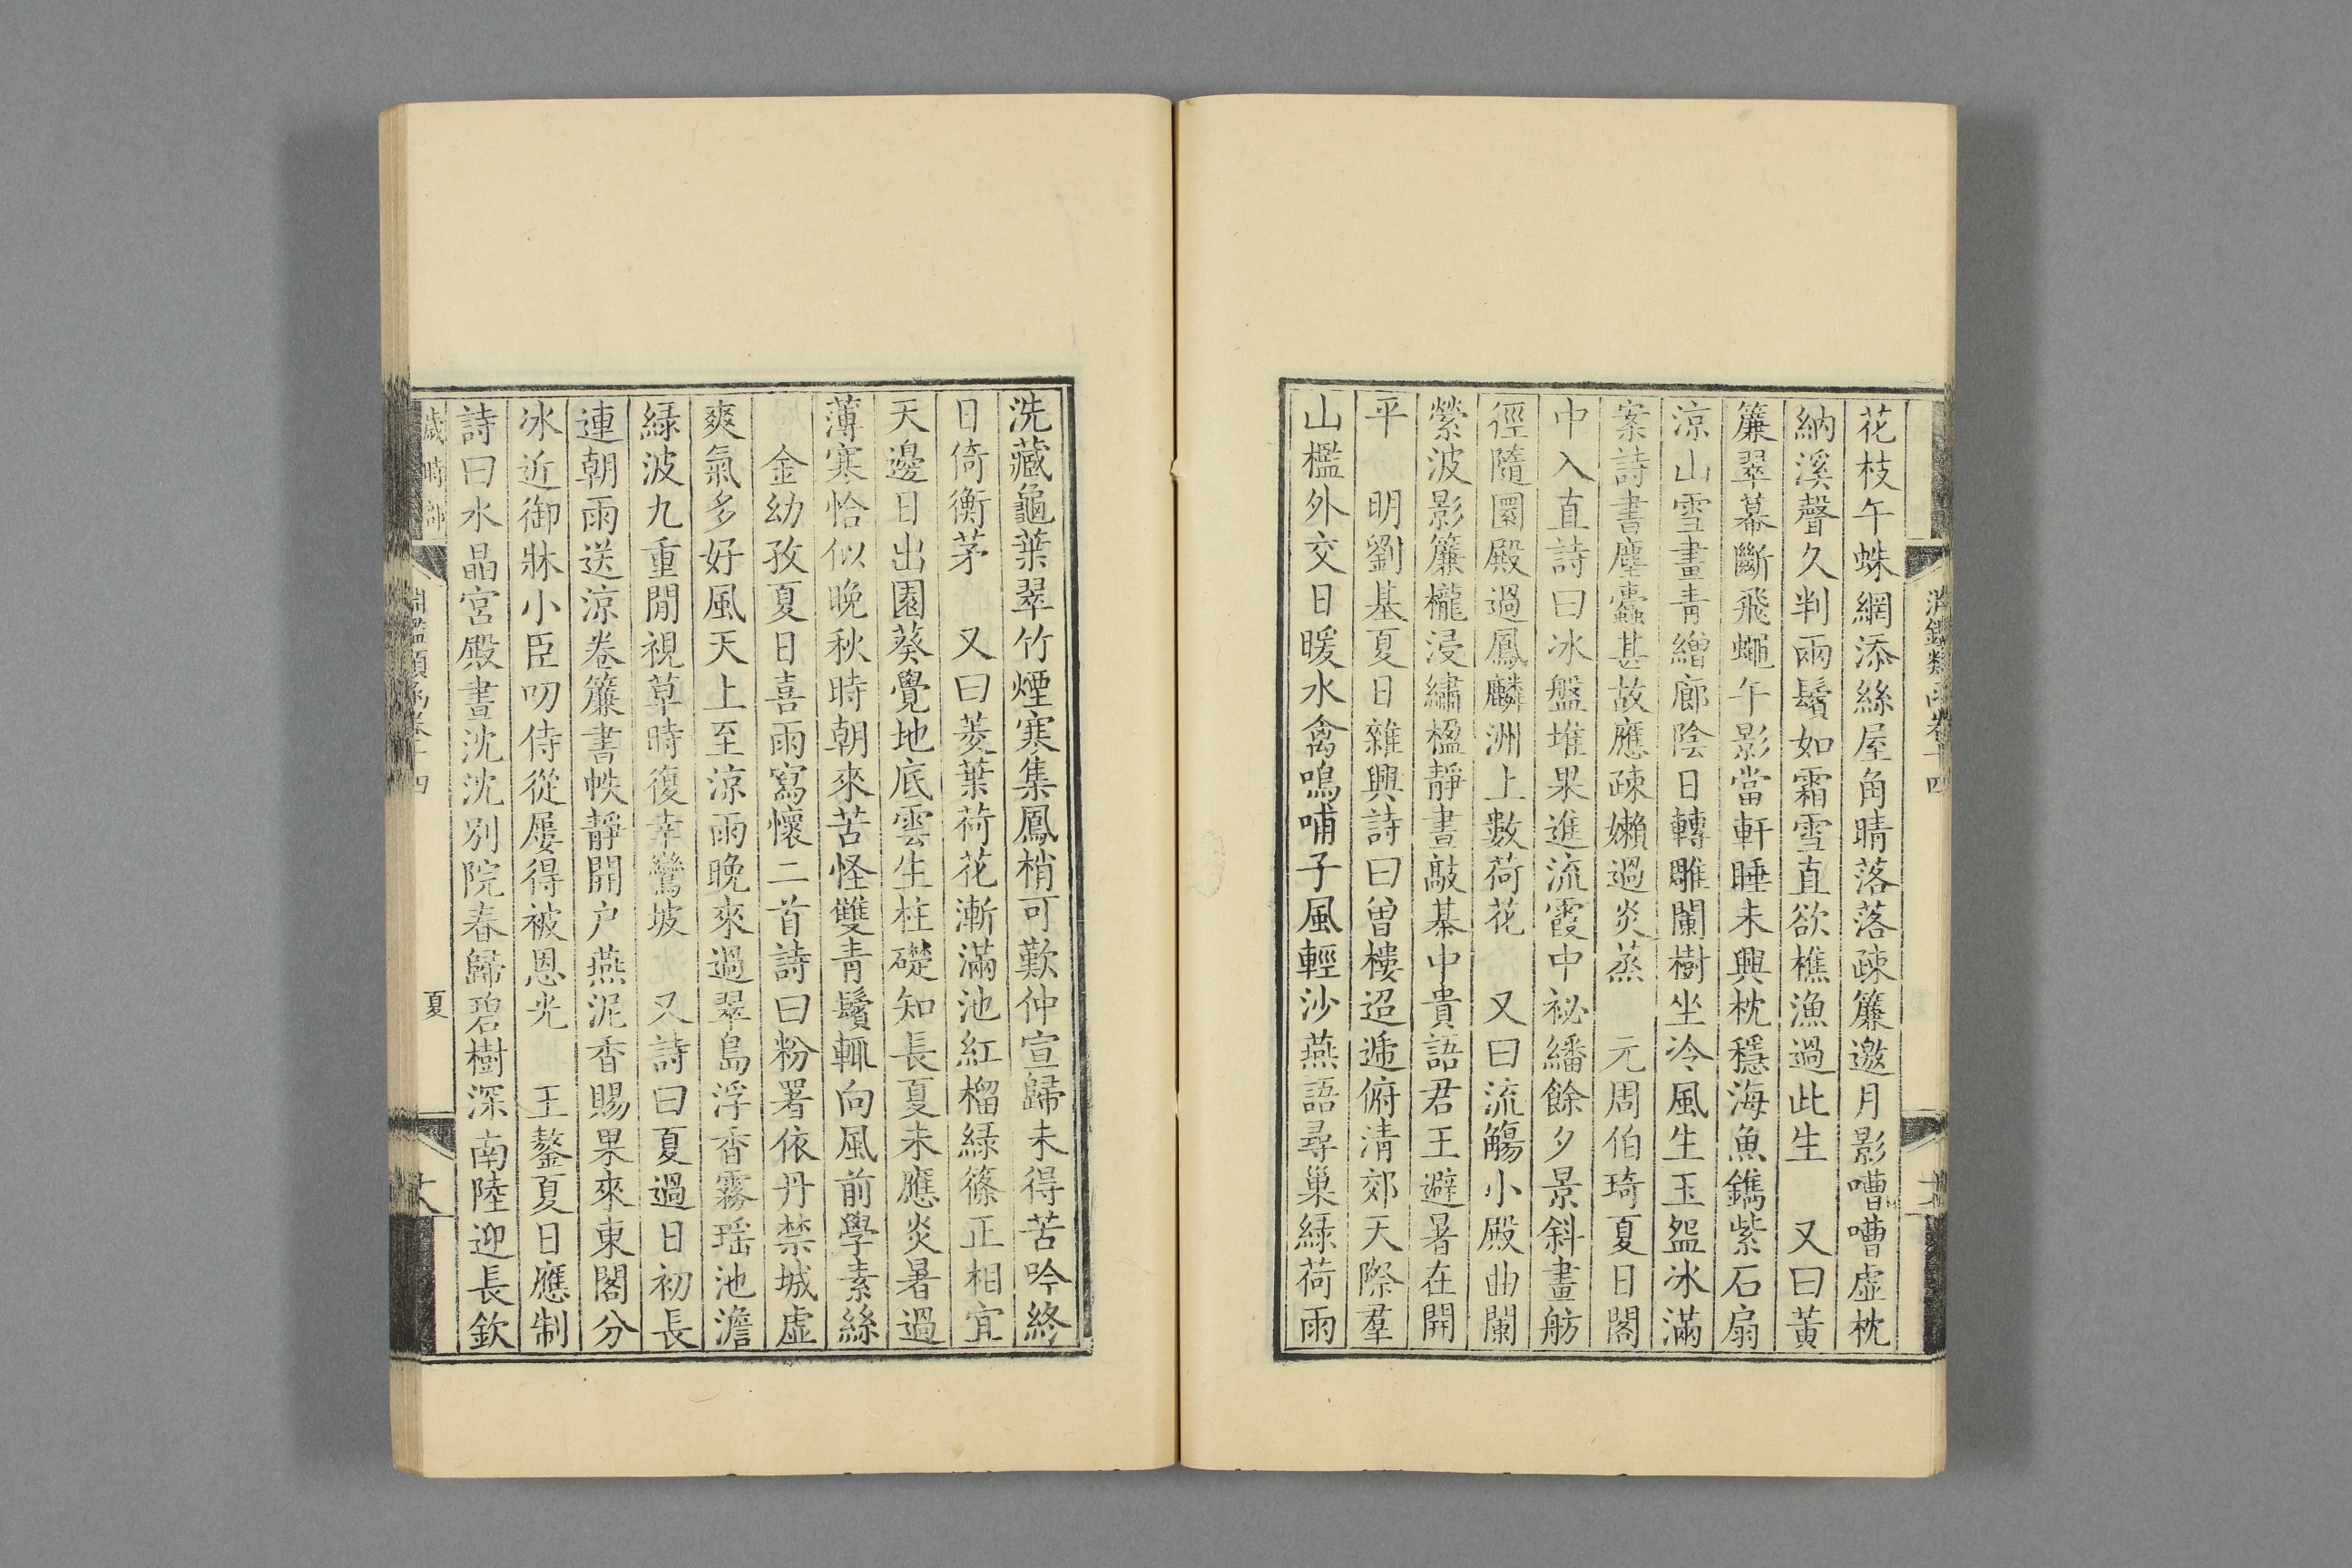 花枝午蛛網添絲屋角晴落落疎簾邀月影嘈嘈虛枕
納溪聲久判兩鬢如霜雪直欲樵漁過此生　又曰黃
簾翠幕斷飛蠅午影當軒睡未興枕穩海魚鐫紫石扇
涼山雪畫青繒廊陰日轉雕闌樹坐冷風生玉盌冰滿
案詩書塵蠹甚故應疎嬾過炎蒸　元周伯琦夏日閣
中入直詩曰冰盤堆果進流霞中祕繙餘夕景斜畫舫
徑隨圜殿過鳳麟洲上數荷花　又曰流觴小殿曲闌
縈波影簾櫳浸繡楹靜晝敲棊中貴語君王避暑在開
平　明劉基夏日雜興詩曰曾樓迢遞俯清郊天際羣
山檻外交日暖水禽鳴哺子風輕沙燕語尋巢綠荷雨
洗藏龜葉翠竹煙寒集鳳梢可歎仲宣歸未得苦吟終
日倚衡茅　又曰菱葉荷花漸滿池紅榴綠篠正相宜
天邊日出園葵覺地底雲生柱礎知長夏未應炎暑過
薄寒恰似晚秋時朝來苦怪雙青鬢輒向風前學素絲
金幼孜夏日喜雨寫懷二首詩曰粉署依丹禁城虛
爽氣多好風天上至涼雨晚來過翠島浮香霧瑤池澹
綠波九重閒視草時復幸鸞坡　又詩曰夏過日初長
連朝雨送涼卷簾書帙靜開户燕泥香賜果來東閣分
冰近御牀小臣叨侍從屢得被恩光　王鏊夏日應制
詩曰水晶宮殿晝沈沈別院春歸碧樹深南陸迎長欽
歲時部
淵鑑類函卷十四
夏